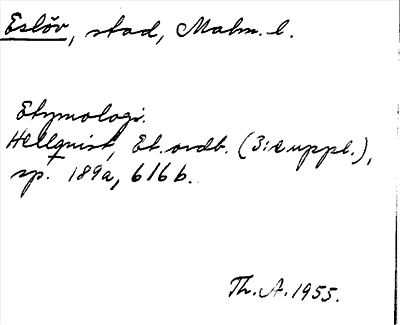 Eslöv, stad, Malm. l.
Etymologi.
Hellquist, Et. ordb. (3:e uppl.),
sp. 189a, 616b.
Th. A. 1955.